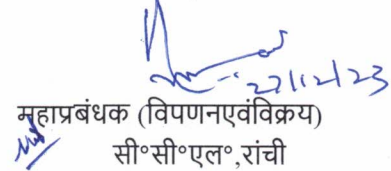 27/12/23
महाप्रबंधक (विपणनएवंविक्रय)
सी°सी°एल°,रांची